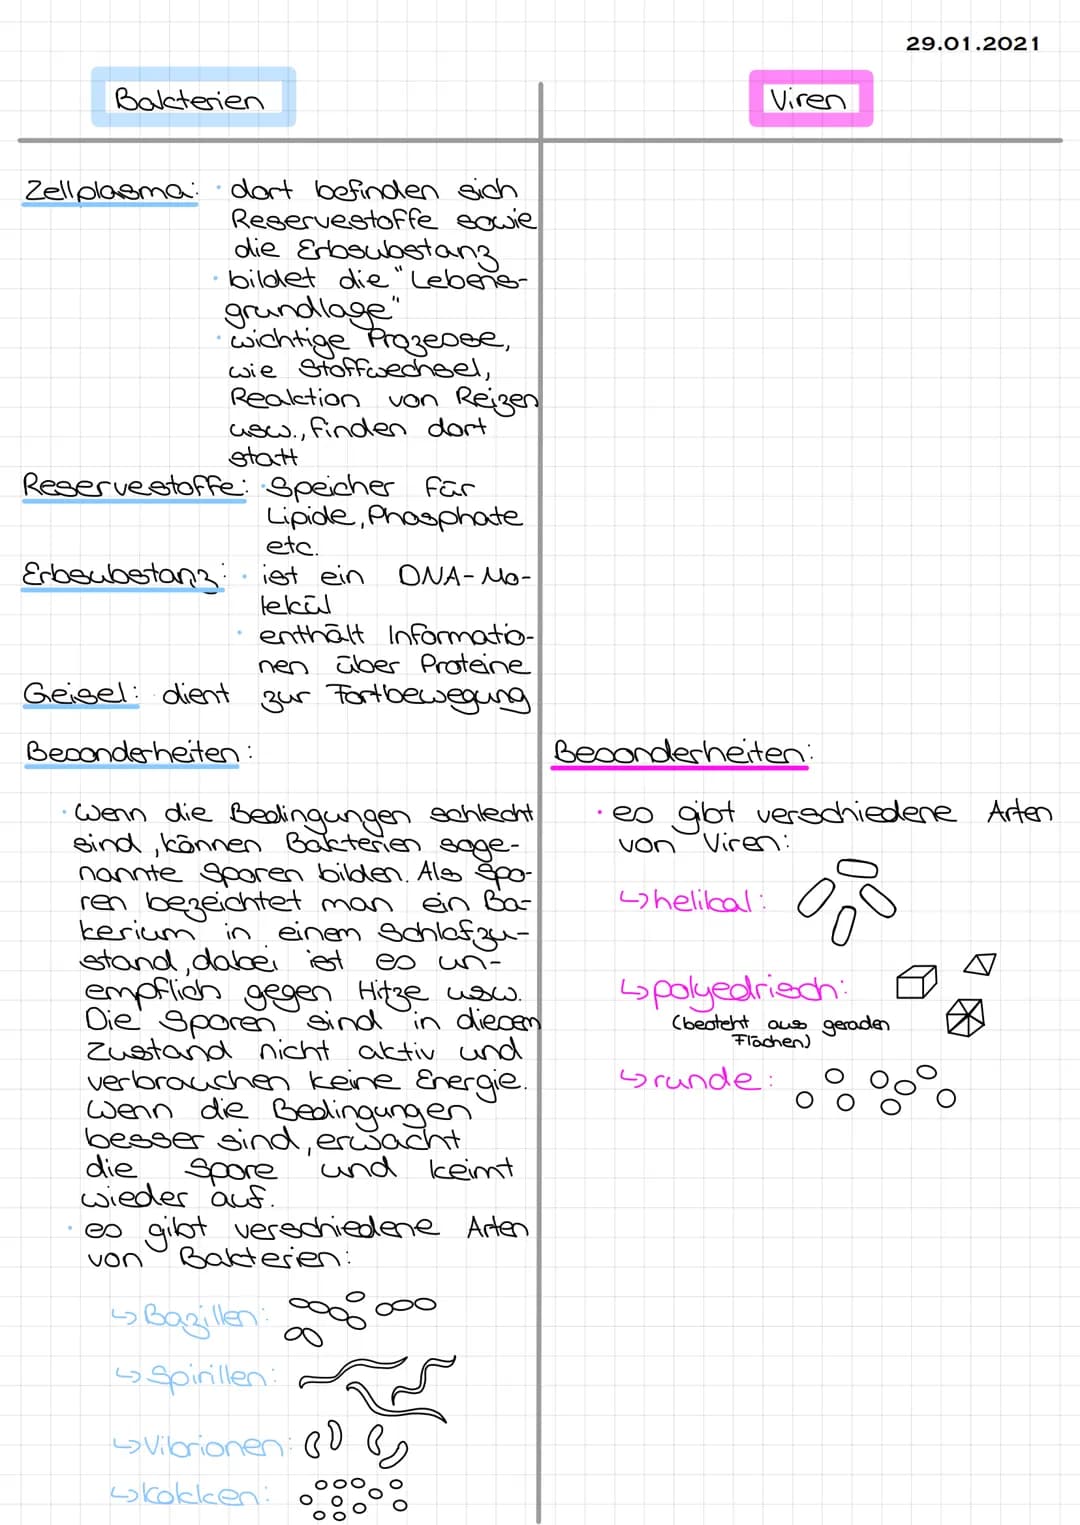 29.01.2021
Bakterien
Viren
Zellplasma: · dort befinden sich
Reservestoffe sowie
die Erbsubstanz
· bildet die "Lebens-
grundlage"
· wichtige Prozesse,
wie Stoffwechsel,
Reaktion von Reizen
usw., finden dort
statt
Reservestoffe: · Speicher für
Lipide, Phosphate
etc.
Erbsubstanz: · ist ein DNA-Mo-
lekül
· enthält Informatio-
nen über Proteine
Geisel: · dient zur Fortbewegung
Besonderheiten:
· Wenn die Bedingungen schlecht
sind, können Bakterien soge-
nannte Sporen bilden. Als Spo-
ren bezeichtet man ein Ba-
kerium in einem Schlafzu-
stand, dabei ist es un-
empflich gegen Hitze usw.
Die Sporen sind in diesen
Zustand nicht aktiv und
verbrauchen keine Energie.
Wenn die Bedingungen
besser sind, erwacht
die Spore und keimt
wieder auf.
· es gibt verschiedene Arten
von Bakterien:
↳ Bazillen:
↳ Spirillen:
↳ Vibrionen:
↳ kokken:
Besonderheiten:
· es gibt verschiedene Arten
von Viren:
↳ helikal:
↳ polyedrisch:
(besteht aus geraden
Flächen)
↳ runde: